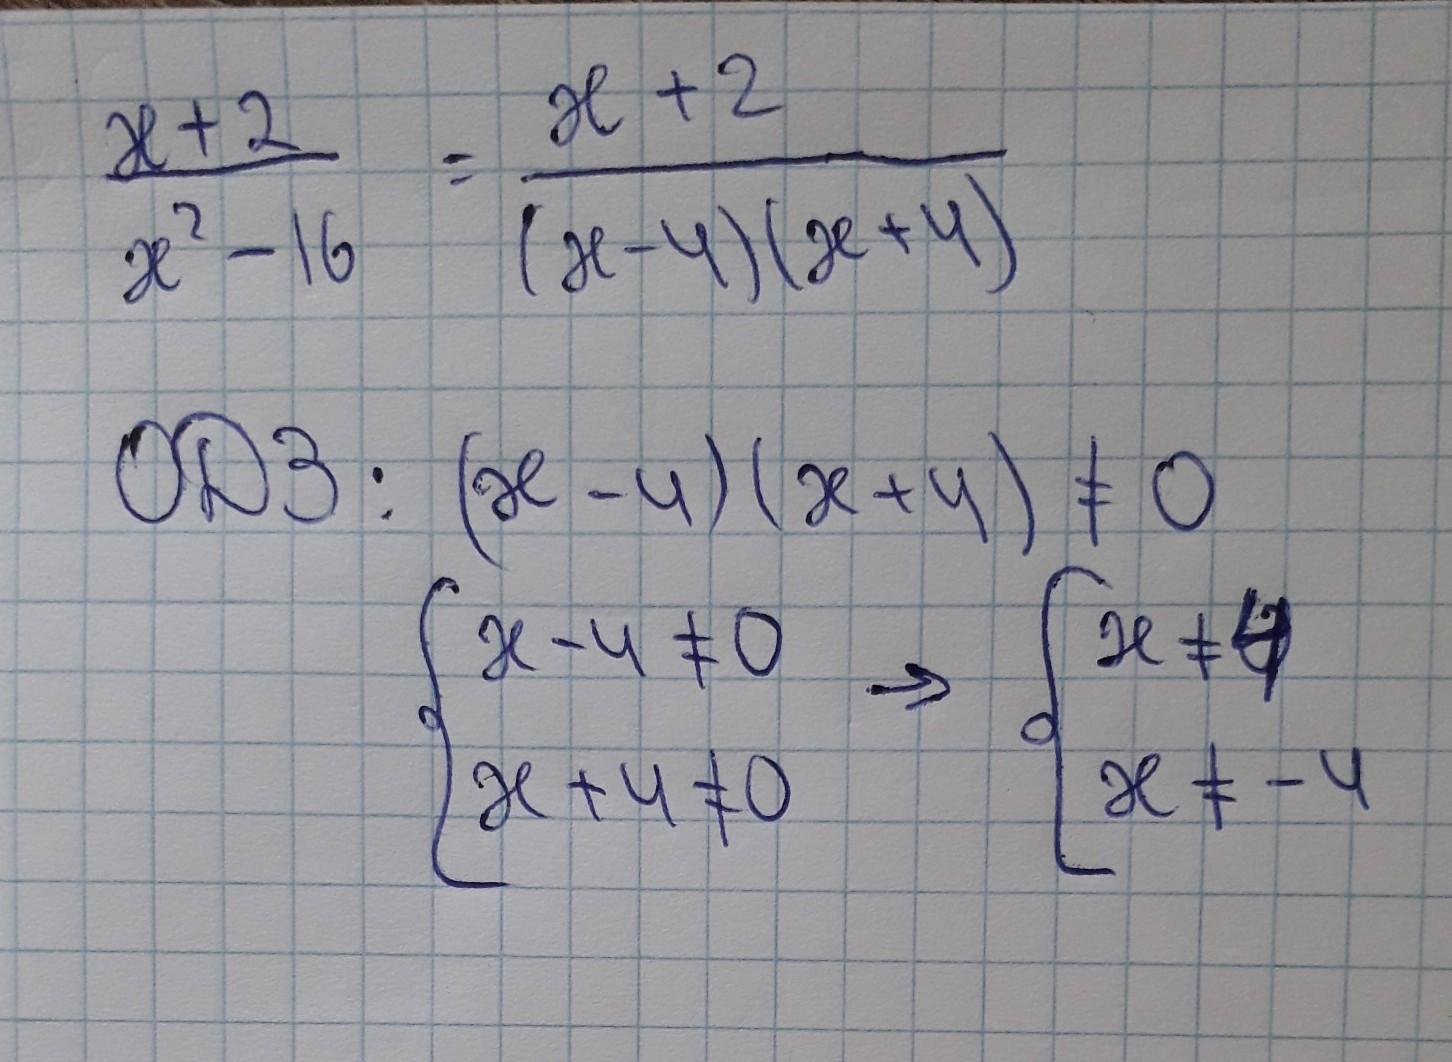 x+2 / x² - 16 = x+2 / (x-4)(x+4)
ОДЗ: (x-4)(x+4) ≠ 0
{ x-4 ≠ 0 → { x ≠ 4
{ x+4 ≠ 0 { x ≠ -4